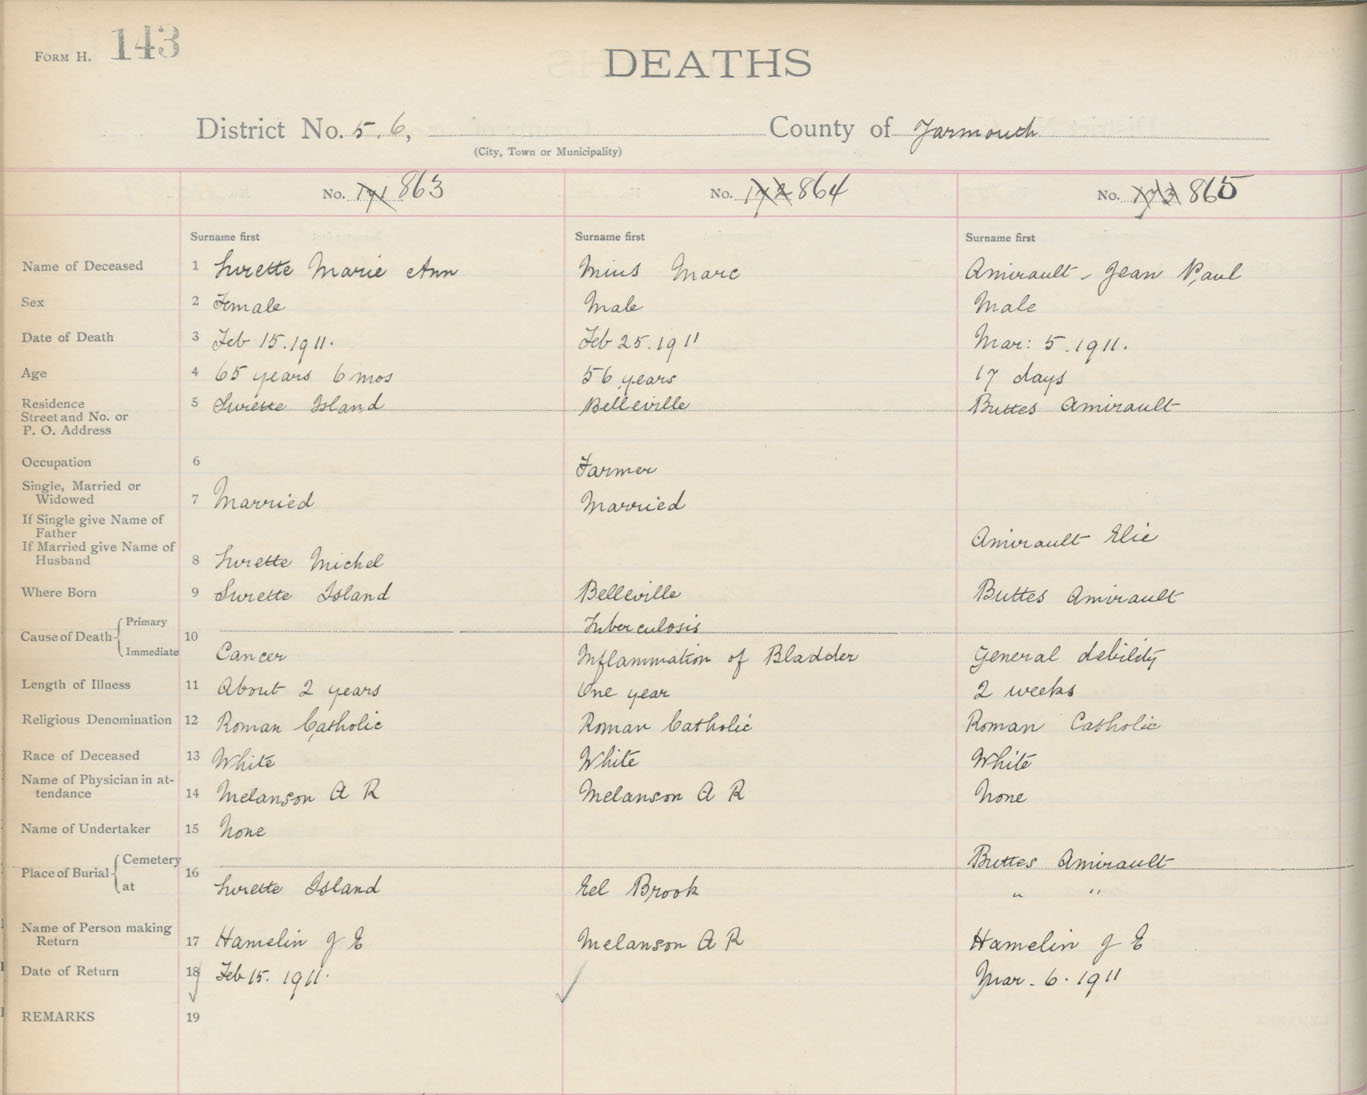 FORM H. 143
DEATHS
District No. 5.6, County of Yarmouth
(City, Town or Municipality)
No. 171 863 No. 172 864 No. 173 865
Surname first Surname first Surname first
Name of Deceased 1 Surette Marie Ann Mius Marc Amirault - Jean Paul
Sex 2 Female Male Male
Date of Death 3 Feb 15. 1911. Feb 25. 1911 Mar: 5. 1911.
Age 4 65 years 6 mos 56 years 17 days
Residence 5 Surette Island Belleville Buttes Amirault
Street and No. or
P. O. Address
Occupation 6 Farmer
Single, Married or
Widowed 7 Married Married
If Single give Name of
Father Amirault Elie
If Married give Name of
Husband 8 Surette Michel
Where Born 9 Surette Island Belleville Buttes Amirault
Primary Tuberculosis
Cause of Death 10
Immediate Cancer Inflammation of Bladder General debility
Length of Illness 11 About 2 years One year 2 weeks
Religious Denomination 12 Roman Catholic Roman Catholic Roman Catholic
Race of Deceased 13 White White White
Name of Physician in at-
tendance 14 Melanson A R Melanson A R None
Name of Undertaker 15 None
Cemetery Buttes Amirault
Place of Burial 16
at Surette Island Eel Brook " "
Name of Person making
Return 17 Hamelin J E Melanson A R Hamelin J E
Date of Return 18 Feb 15. 1911. Mar. 6. 1911
REMARKS 19